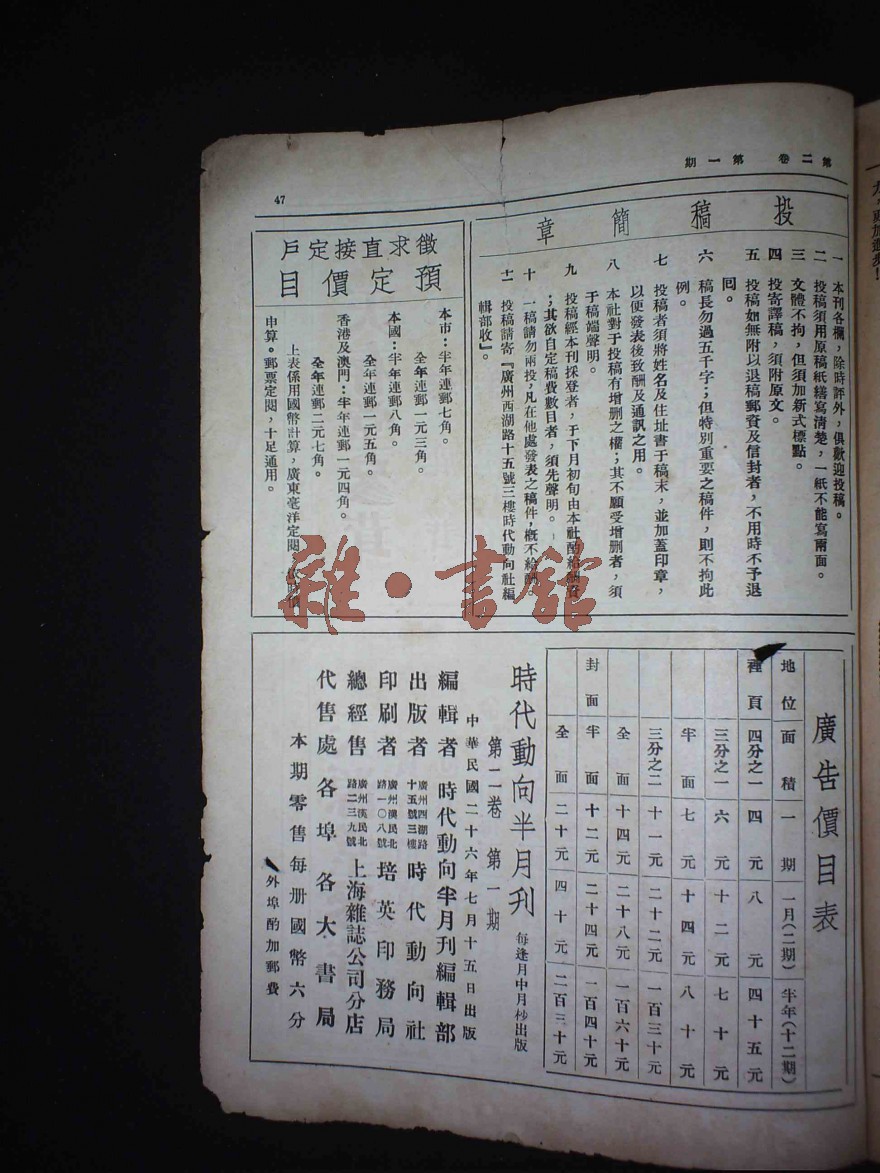 第二卷 第一期
47
投稿簡章
一 本刊各欄，除時評外，俱歡迎投稿。
二 投稿須用原稿紙繕寫清楚，一紙不能寫兩面。
三 文體不拘，但須加新式標點。
四 投寄譯稿，須附原文。
五 投稿如無附以退稿郵資及信封者，不用時不予退
回。
六 稿長勿過五千字；但特別重要之稿件，則不拘此
例。
七 投稿者須將姓名及住址書于稿末，並加蓋印章，
以便發表後致酬及通訊之用。
八 本社對于投稿有增删之權；其不願受增删者，須
于稿端聲明。
九 投稿經本刊採登者，于下月初旬由本社酌給酬資
；其欲自定稿費數目者，須先聲明。
十 一稿請勿兩投，凡在他處發表之稿件，概不給酬。
十一 投稿請寄『廣州西湖路十五號三樓時代動向社編
輯部收』。
徵求直接定戶
預定價目
本市：半年連郵七角。
全年連郵一元三角。
本國：半年連郵八角。
全年連郵一元五角。
香港及澳門：半年連郵一元四角。
全年連郵二元七角。
上表係用國幣計算，廣東毫洋定閱，依時價
申算。郵票定閱，十足通用。
廣告價目表
地位 面積 一期 一月(二期) 半年(十二期)
裡頁 四分之一 四元 八元 四十五元
三分之一 六元 十二元 七十元
半面 七元 十四元 八十元
三分之二 十一元 二十二元 一百三十元
全面 十四元 二十八元 一百六十元
封面 半面 十二元 二十四元 一百四十元
全面 二十元 四十元 二百三十元
時代動向半月刊 每逢月中月杪出版
第二卷 第一期
中華民國二十六年七月十五日出版
編輯者 時代動向半月刊編輯部
出版者 廣州西湖路十五號三樓 時代動向社
印刷者 廣州漢民北路一〇八號 培英印務局
總經售 廣州漢民北路二三九號 上海雜誌公司分店
代售處 各埠各大書局
本期零售每册國幣六分
外埠酌加郵費
雜·書舘